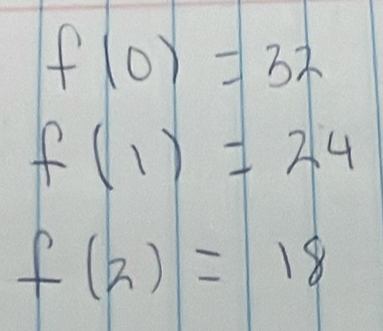 f(0) = 32
f(1) = 24
f(2) = 18